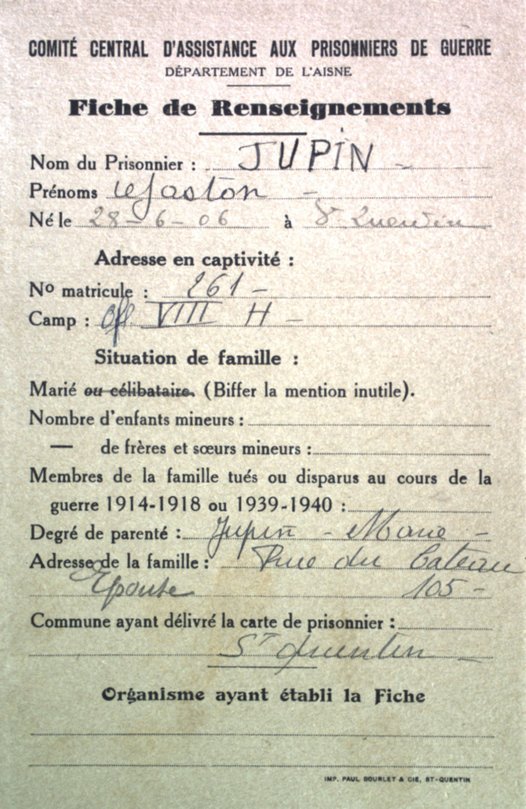 COMITÉ CENTRAL D'ASSISTANCE AUX PRISONNIERS DE GUERRE
DÉPARTEMENT DE L'AISNE
Fiche de Renseignements
Nom du Prisonnier : JUPIN -
Prénoms Gaston -
Né le 28-6-06 à St Quentin
Adresse en captivité :
No matricule : 261 -
Camp : Ofl VIII H -
Situation de famille :
Marié ou célibataire. (Biffer la mention inutile).
Nombre d'enfants mineurs :
— de frères et sœurs mineurs :
Membres de la famille tués ou disparus au cours de la
guerre 1914-1918 ou 1939-1940 :
Degré de parenté : Jupin - Marie -
Adresse de la famille : Rue du Cateau
Epouse 105 -
Commune ayant délivré la carte de prisonnier :
St Quentin -
Organisme ayant établi la Fiche
IMP. PAUL DOURLET & CIE, ST-QUENTIN